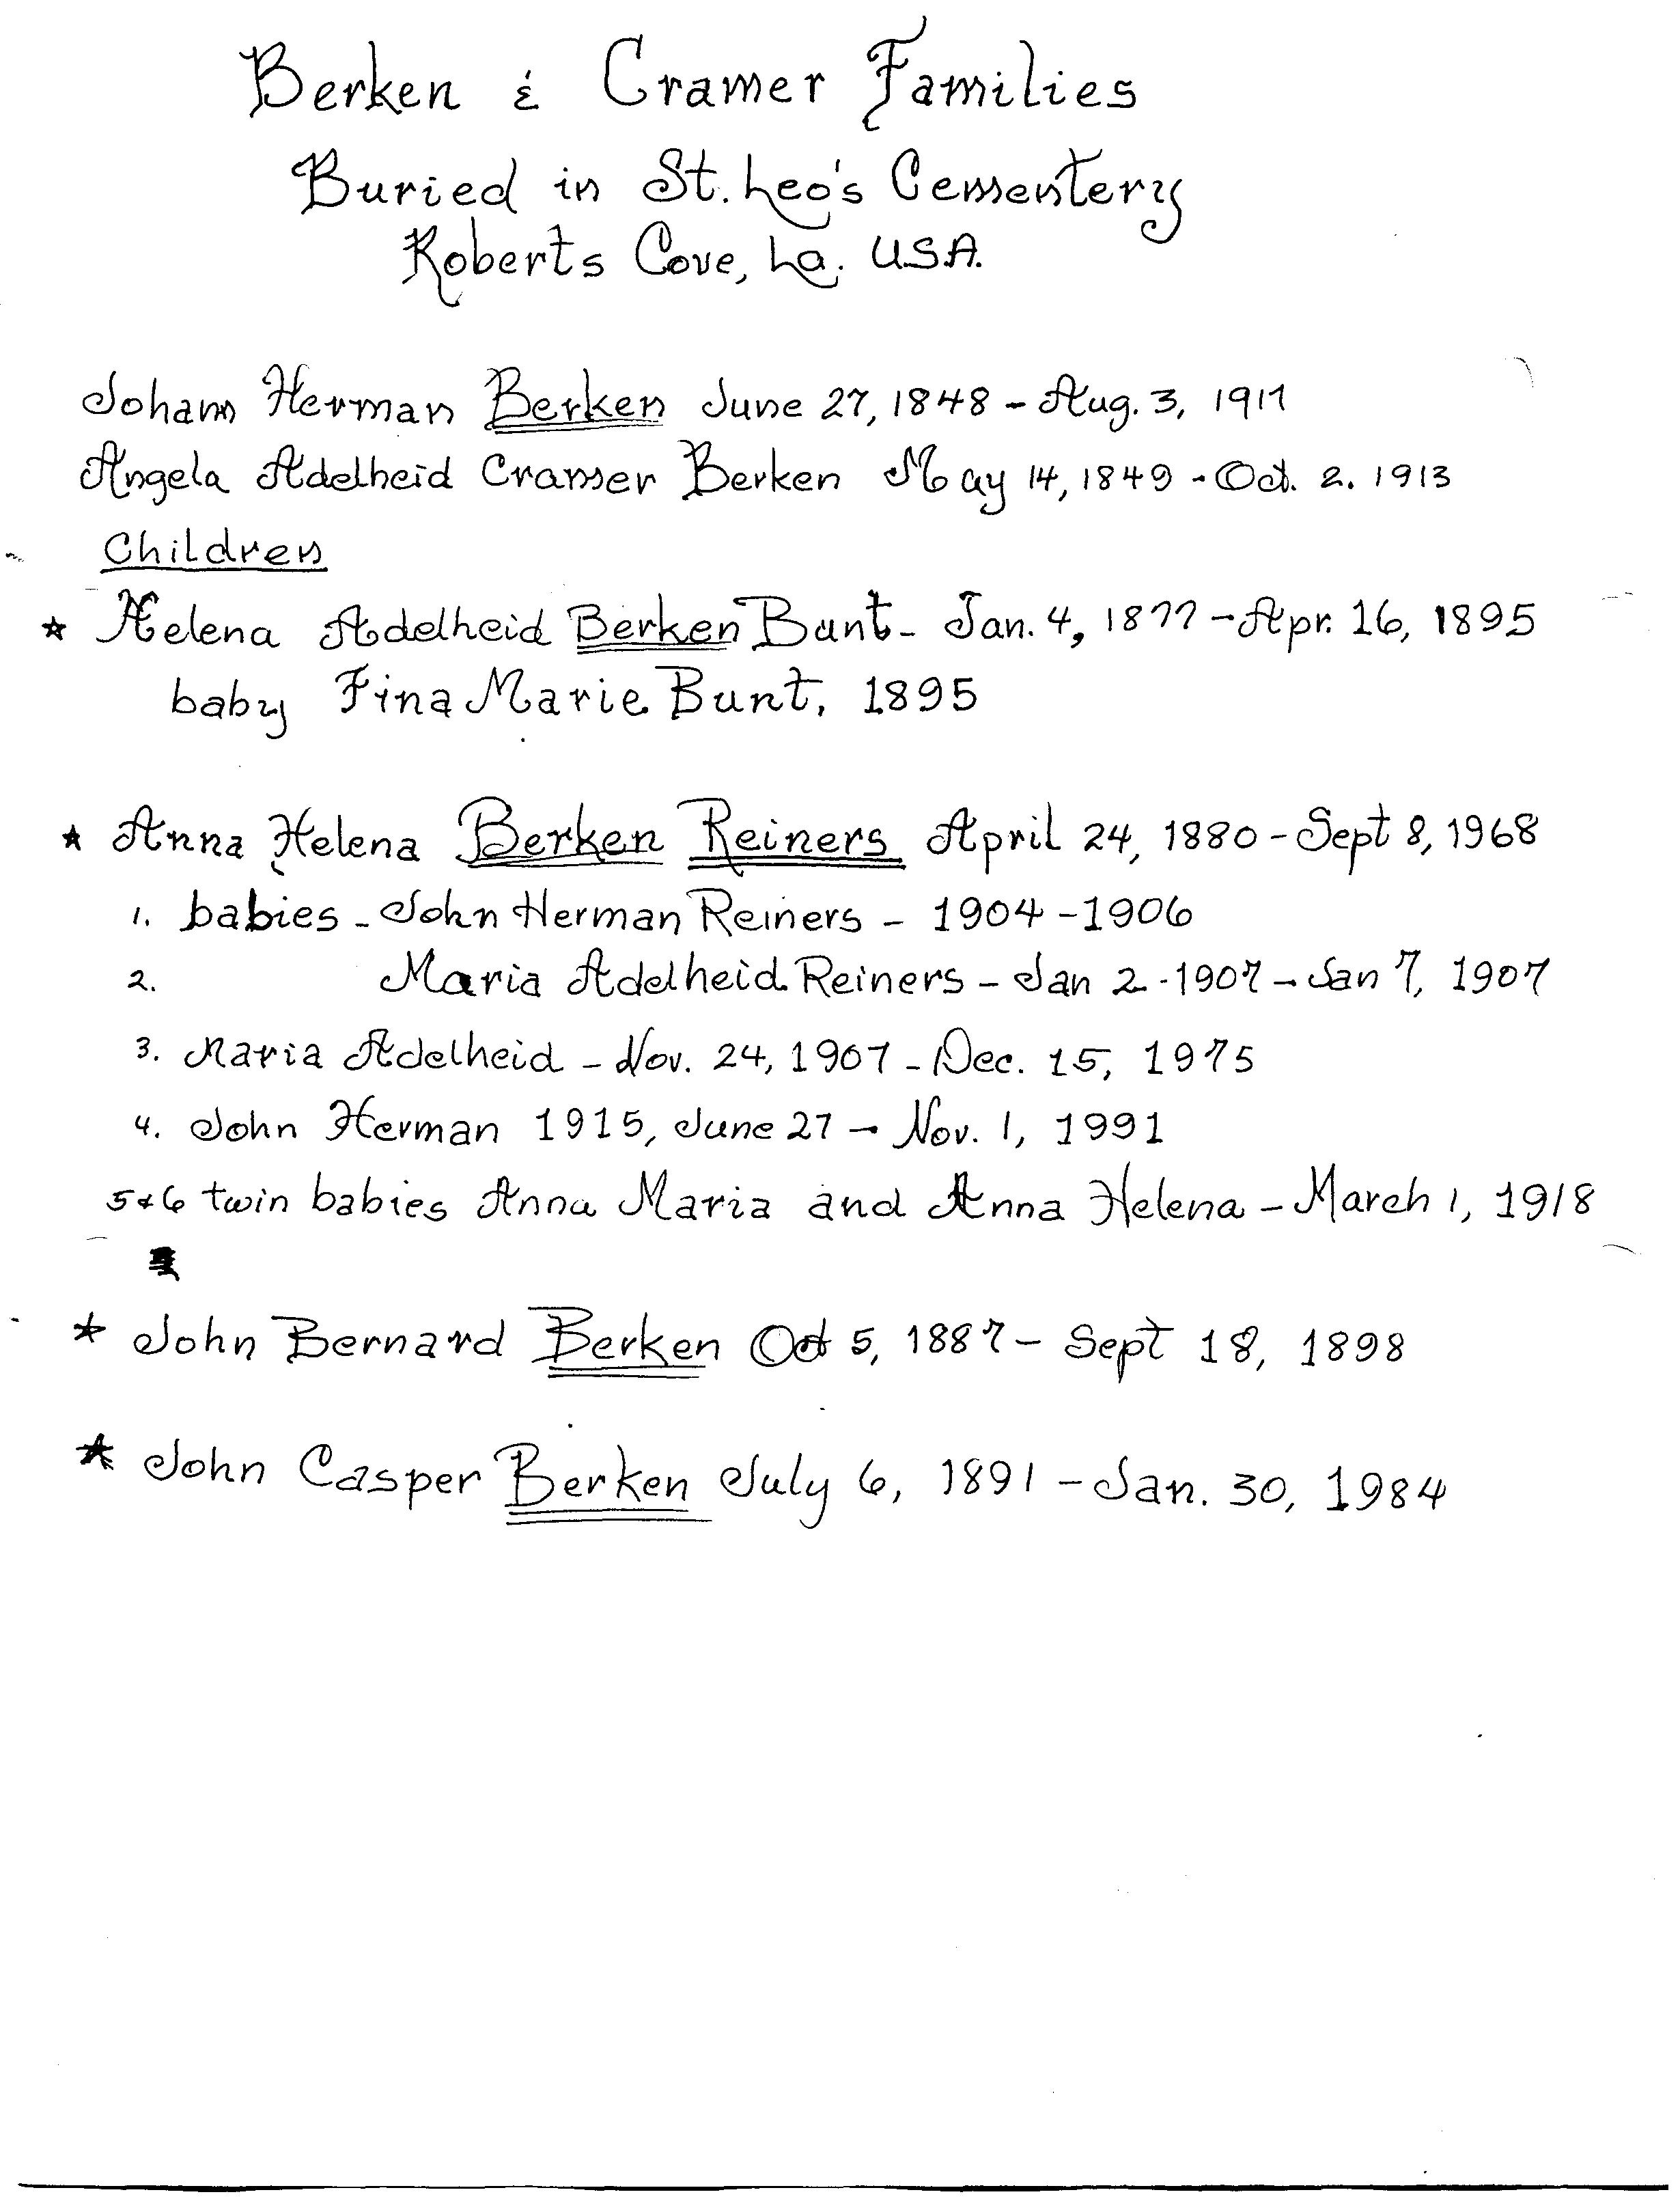 Berken & Cramer Families
Buried in St. Leo's Cementery
Roberts Cove, La. U.S.A.
Johann Herman Berken June 27, 1848 - Aug. 3, 1917
Angela Adelheid Cramer Berken May 14, 1849 - Oct. 2. 1913
Children
* Helena Adelheid Berken Bunt - Jan. 4, 1877 - Apr. 16, 1895
baby Fina Marie Bunt, 1895
* Anna Helena Berken Reiners April 24, 1880 - Sept 8, 1968
1. babies - John Herman Reiners - 1904 - 1906
2. Maria Adelheid Reiners - Jan 2 - 1907 - Jan 7, 1907
3. Maria Adelheid - Nov. 24, 1907 - Dec. 15, 1975
4. John Herman 1915, June 27 - Nov. 1, 1991
5 & 6 twin babies Anna Maria and Anna Helena - March 1, 1918
* John Bernard Berken Oct 5, 1887 - Sept 18, 1898
* John Casper Berken July 6, 1891 - Jan. 30, 1984